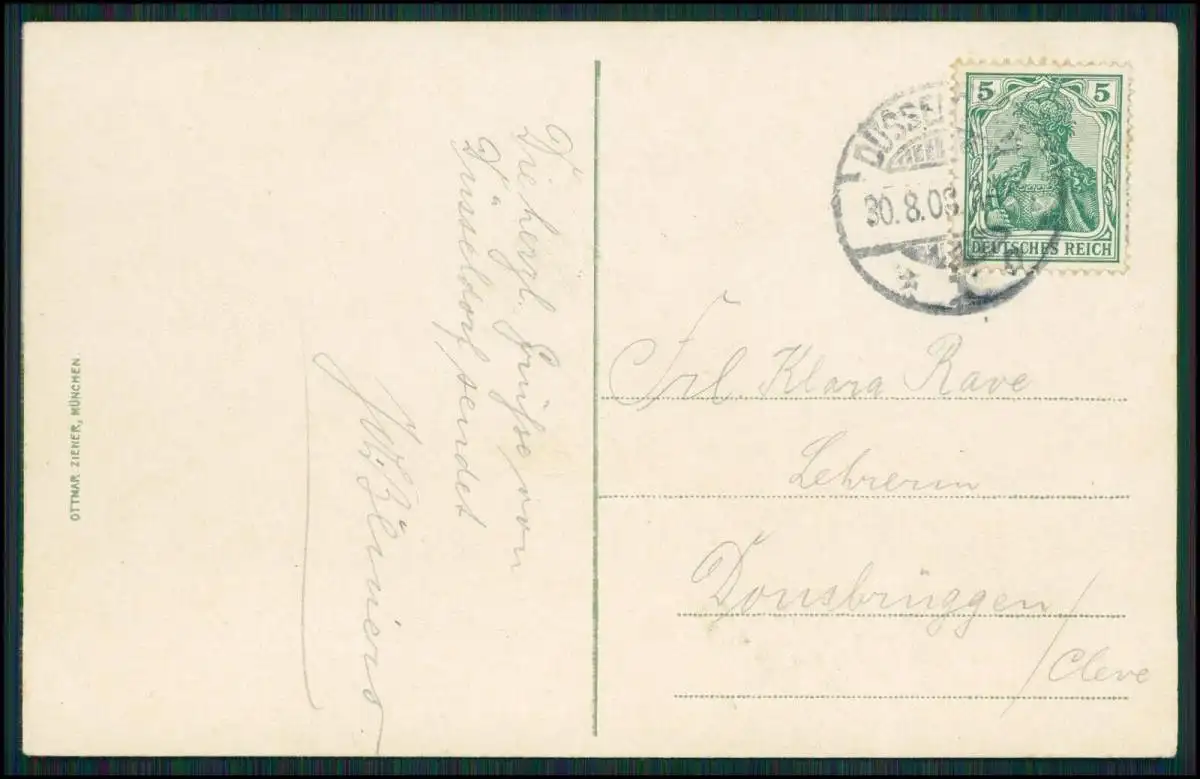 Die hergl. Grüsse von
Düsseldorf sendet
OTTMAR ZIEHER, MÜNCHEN.
5 5
DEUTSCHES REICH
DÜSSEL
30.8.09.
Frl. Klara Rave
Lehrerin
Donsbrüggen/
Cleve